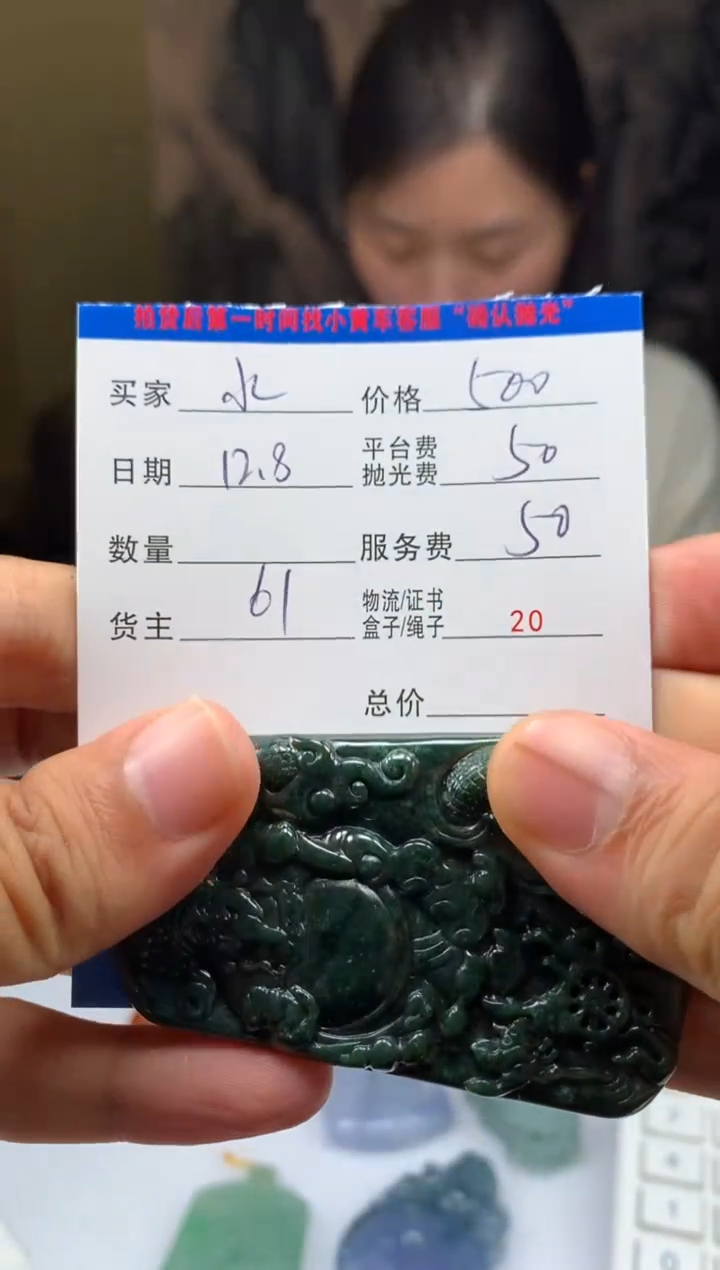 拍货后第一时间找小黄车客服“确认抛光”
买家 水 价格 500
日期 12.8 平台费 抛光费 50
数量 服务费 50
货主 61 物流/证书 盒子/绳子 20
总价